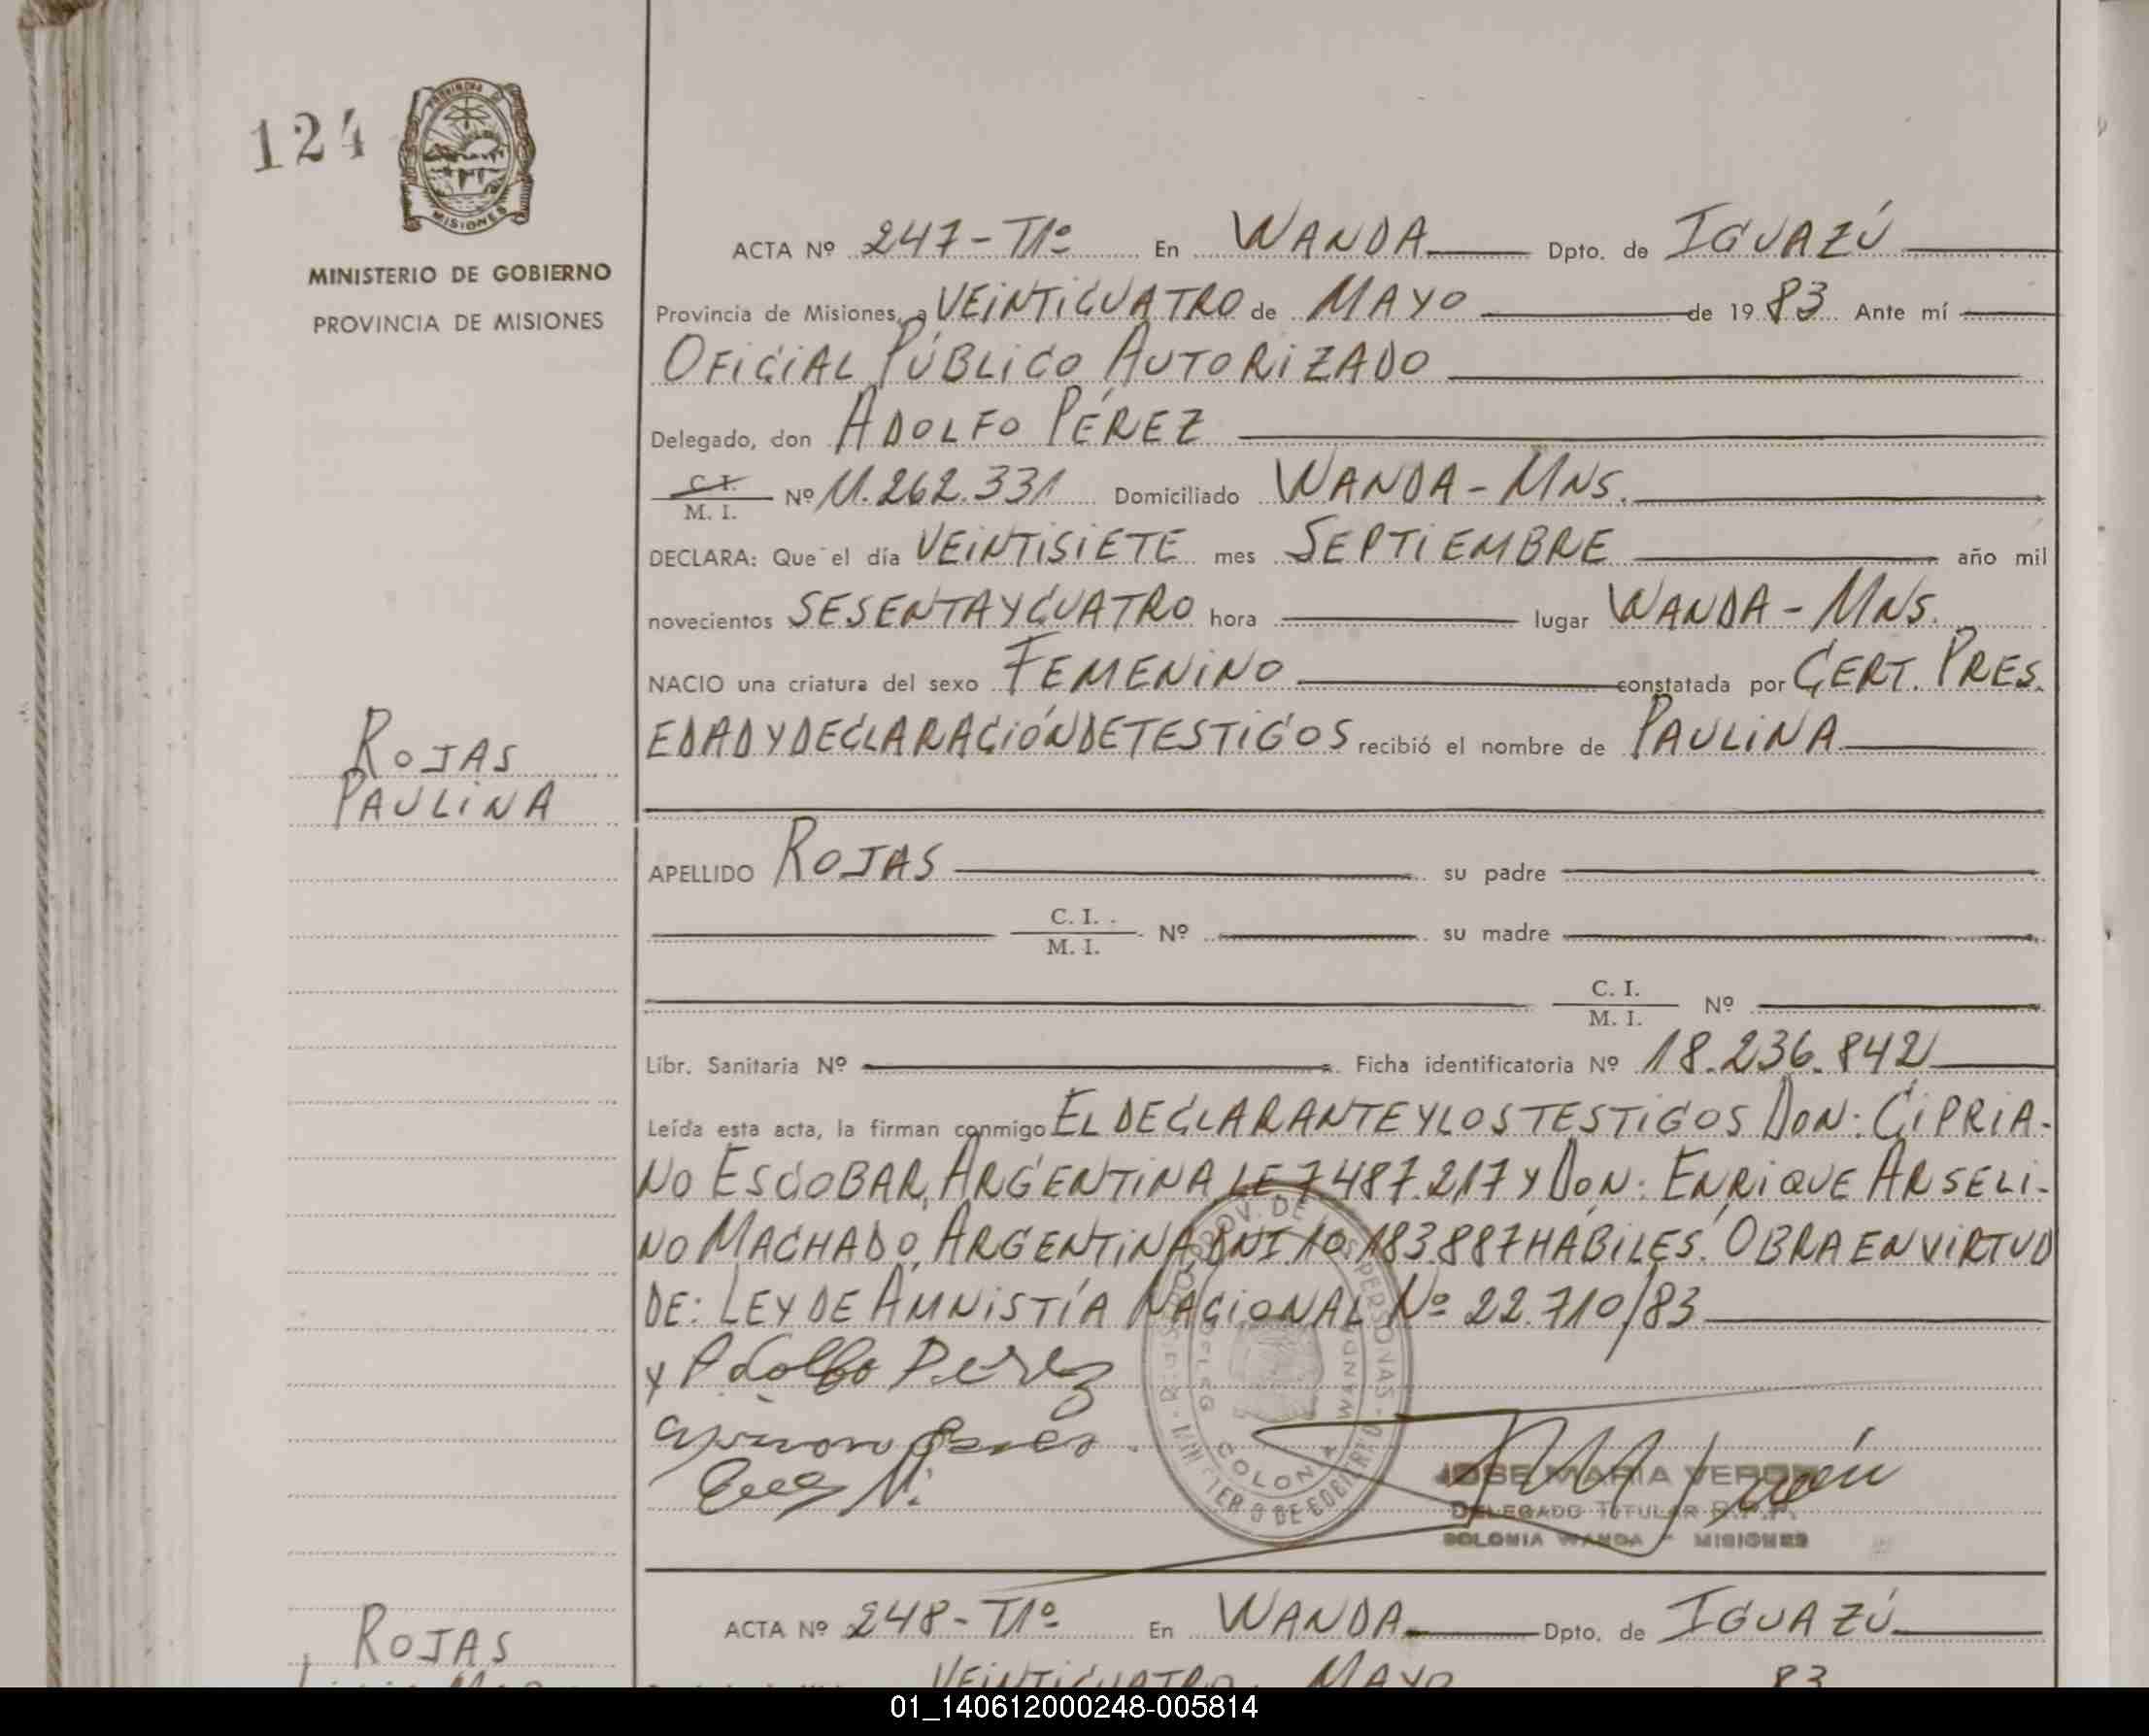 124
PROVINCIA DE
MISIONES
MINISTERIO DE GOBIERNO
PROVINCIA DE MISIONES
ROJAS
PAULINA
ACTA Nº 247-T1º En WANDA Dpto. de IGUAZÚ
Provincia de Misiones, a VEINTICUATRO de MAYO de 1983 Ante mí
OFICIAL PÚBLICO AUTORIZADO
Delegado, don ADOLFO PÉREZ
C.I. / M. I. Nº 11.262.331 Domiciliado WANDA-MNS.
DECLARA: Que el día VEINTISIETE mes SEPTIEMBRE año mil
novecientos SESENTA Y CUATRO hora lugar WANDA-MNS.
NACIO una criatura del sexo FEMENINO constatada por CERT. PRES.
EDAD Y DECLARACIÓN DE TESTIGOS recibió el nombre de PAULINA
APELLIDO ROJAS su padre
C. I. / M. I. Nº su madre
C. I. / M. I. Nº
Libr. Sanitaria Nº Ficha identificatoria Nº 18.236.842
Leída esta acta, la firman conmigo EL DECLARANTE Y LOS TESTIGOS DON: CIPRIA-
NO ESCOBAR, ARGENTINA LE 7487.217 Y DON: ENRIQUE ARSELI-
NO MACHADO, ARGENTINA DNI 10.183.887 HÁBILES. OBRA EN VIRTUD
DE: LEY DE AMNISTÍA NACIONAL Nº 22.710/83
y Adolfo Perez
JOSE MARIA
DELEGADO TITULAR R.P.P.
COLONIA WANDA - MISIONES
ROJAS
ACTA Nº 248-T1º En WANDA Dpto. de IGUAZÚ
VEINTICUATRO MAYO 83
01_140612000248-005814